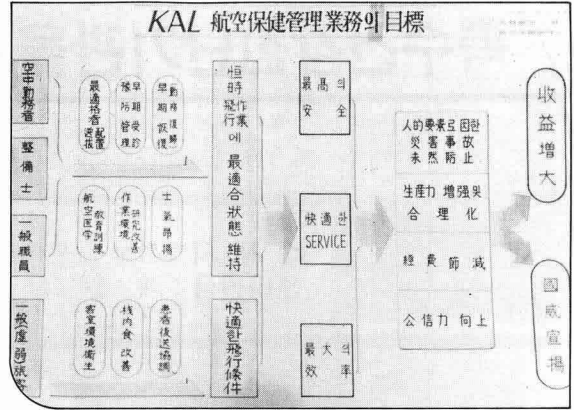 KAL 航空保健管理業務의 目標
空中勤務者
整備士
一般職員
一般(虛弱)旅客
最適格者 配置
選拔
早期受診
豫防管理
勤務復歸
早期恢復
教育訓練
航空医学
研究改善
作業環境
士氣昂揚
客室環境衛生
機内食 改善
患者後送協調
恒時 飛行作業에 最適合 狀態 維持
快適한 飛行條件
最高의
安全
快適한
SERVICE
最大의
效率
人的要素로 因한
災害事故
未然防止
生産力 增强 및
合理化
經費節減
公信力 向上
收益增大
國威宣揚